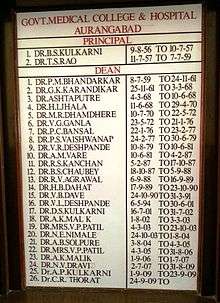 GOVT.MEDICAL COLLEGE & HOSPITAL
AURANGABAD
PRINCIPAL
1. DR.B.S.KULKARNI 9-8-56 TO 10-7-57
2. DR.T.S.RAO 11-7-57 TO 7-7-59
DEAN
1. DR.P.M.BHANDARKAR 8-7-59 TO 24-11-61
2. DR.G.K.KARANDIKAR 25-11-61 TO 3-3-68
3. DR.ASHTAPUTRE 4-3-68 TO 10-6-68
4. DR.H.I.JHALA 11-6-68 TO 29-4-70
5. DR.M.R.DHAMDHERE 10-7-70 TO 22-5-72
6. DR.V.G.GANLA 23-5-72 TO 21-1-76
7. DR.P.C.BANSAL 22-1-76 TO 23-2-77
8. DR.P.S.VAISHWANAP 24-2-77 TO 30-6-79
9. DR.V.R.DESHPANDE 10-8-79 TO 10-6-81
10. DR.A.M.VARE 10-6-81 TO 4-2-87
11. DR.R.S.KANCHAN 5-2-87 TO 17-10-87
12. DR.B.S.CHAUBEY 18-10-87 TO 5-9-88
13. DR.R.V.AGRAWAL 6-9-88 TO 16-9-89
14. DR.H.B.DAHAT 17-9-89 TO 23-10-90
15. DR.V.B.DAVE 24-10-90 TO
16. DR.V.L.DESHPANDE 6-5-94 TO 30-6-01
17. DR.D.S.KULKARNI 16-7-01 TO 31-7-02
18. DR.A.K.MALIK 1-8-02 TO
19. DR.MRS.V.P.PATIL 4-3-03 TO 23-10-03
20. DR.N.E.NIMALE 24-10-03 TO
21. DR.A.B.SOLPURE 3-8-04 TO 4-3-05
22. DR.MRS.V.P.PATIL 4-3-05 TO
23. DR.A.K.MALIK 1-9-06 TO
24. DR.N.V.DRAVID 2-7-07 TO 31-8-09
25. Dr.A.P.KULKARNI 1-9-09 TO 23-9-09
26. Dr.C.R. THORAT 24-9-09 TO